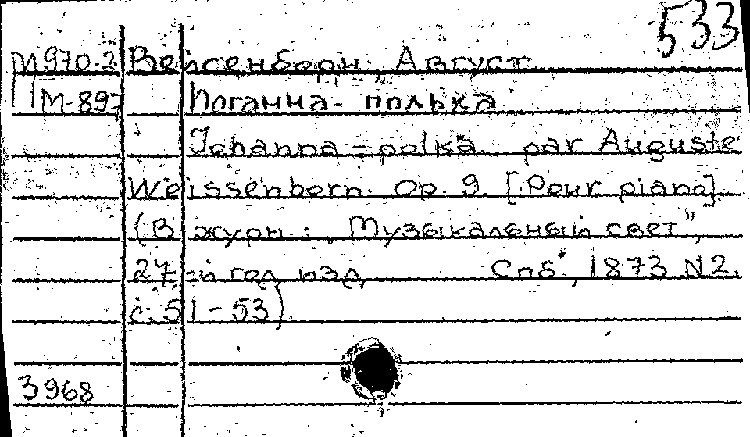 533
М970.2 Вейсенборн, Август
М-897 Иоганна-полька
Johanna-polka par Auguste
Weissenborn. Op. 9. [Pour piano].
(В журн.: „Музыкальный свет",
27-й год изд. Спб., 1873 N2.
с. 51-53)
3968